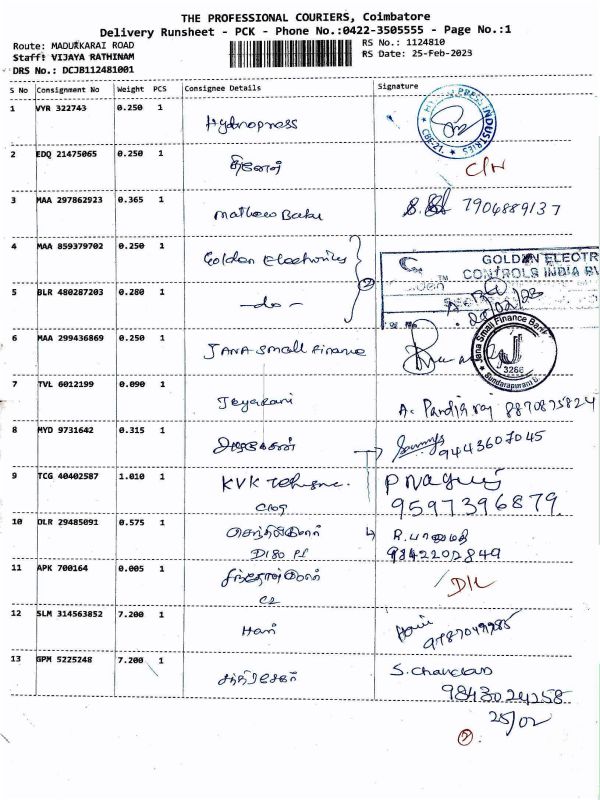 THE PROFESSIONAL COURIERS, Coimbatore
Delivery Runsheet - PCK - Phone No.:0422-3505555 - Page No.:1
Route: MADUKKARAI ROAD
RS No.: 1124810
Staff: VIJAYA RATHINAM
RS Date: 25-Feb-2023
DRS No.: DCJB112481001
S No Consignment No Weight PCS Consignee Details Signature
1 VYR 322743 0.250 1 Hydropress
2 EDQ 21475065 0.250 1 தினேஷ்
3 MAA 297862923 0.365 1 Mathew Babu 7904889137
4 MAA 859379702 0.250 1 Golden Electronics
GOLDEN ELECTR
CONTROLS INDIA
5 BLR 480287203 0.280 1 -do-
25/02/23
6 MAA 299436869 0.250 1 JANA Small Finance
Jana Small Finance Bank
3266
Sundarapuram
7 TVL 6012199 0.090 1 Jeyarani A. Pandiaraj 8870875824
8 MYD 9731642 0.315 1 9443607045
9 TCG 40402587 1.010 1 KVK
9597396879
10 DLR 29485091 0.575 1 செந்தில்குமார்
9842202849
11 APK 700164 0.005 1 D/L
12 SLM 314563852 7.200 1 Hari Hari
9787049985
13 GPM 5225248 7.200 1 S. Chandran
9843024258
25/02